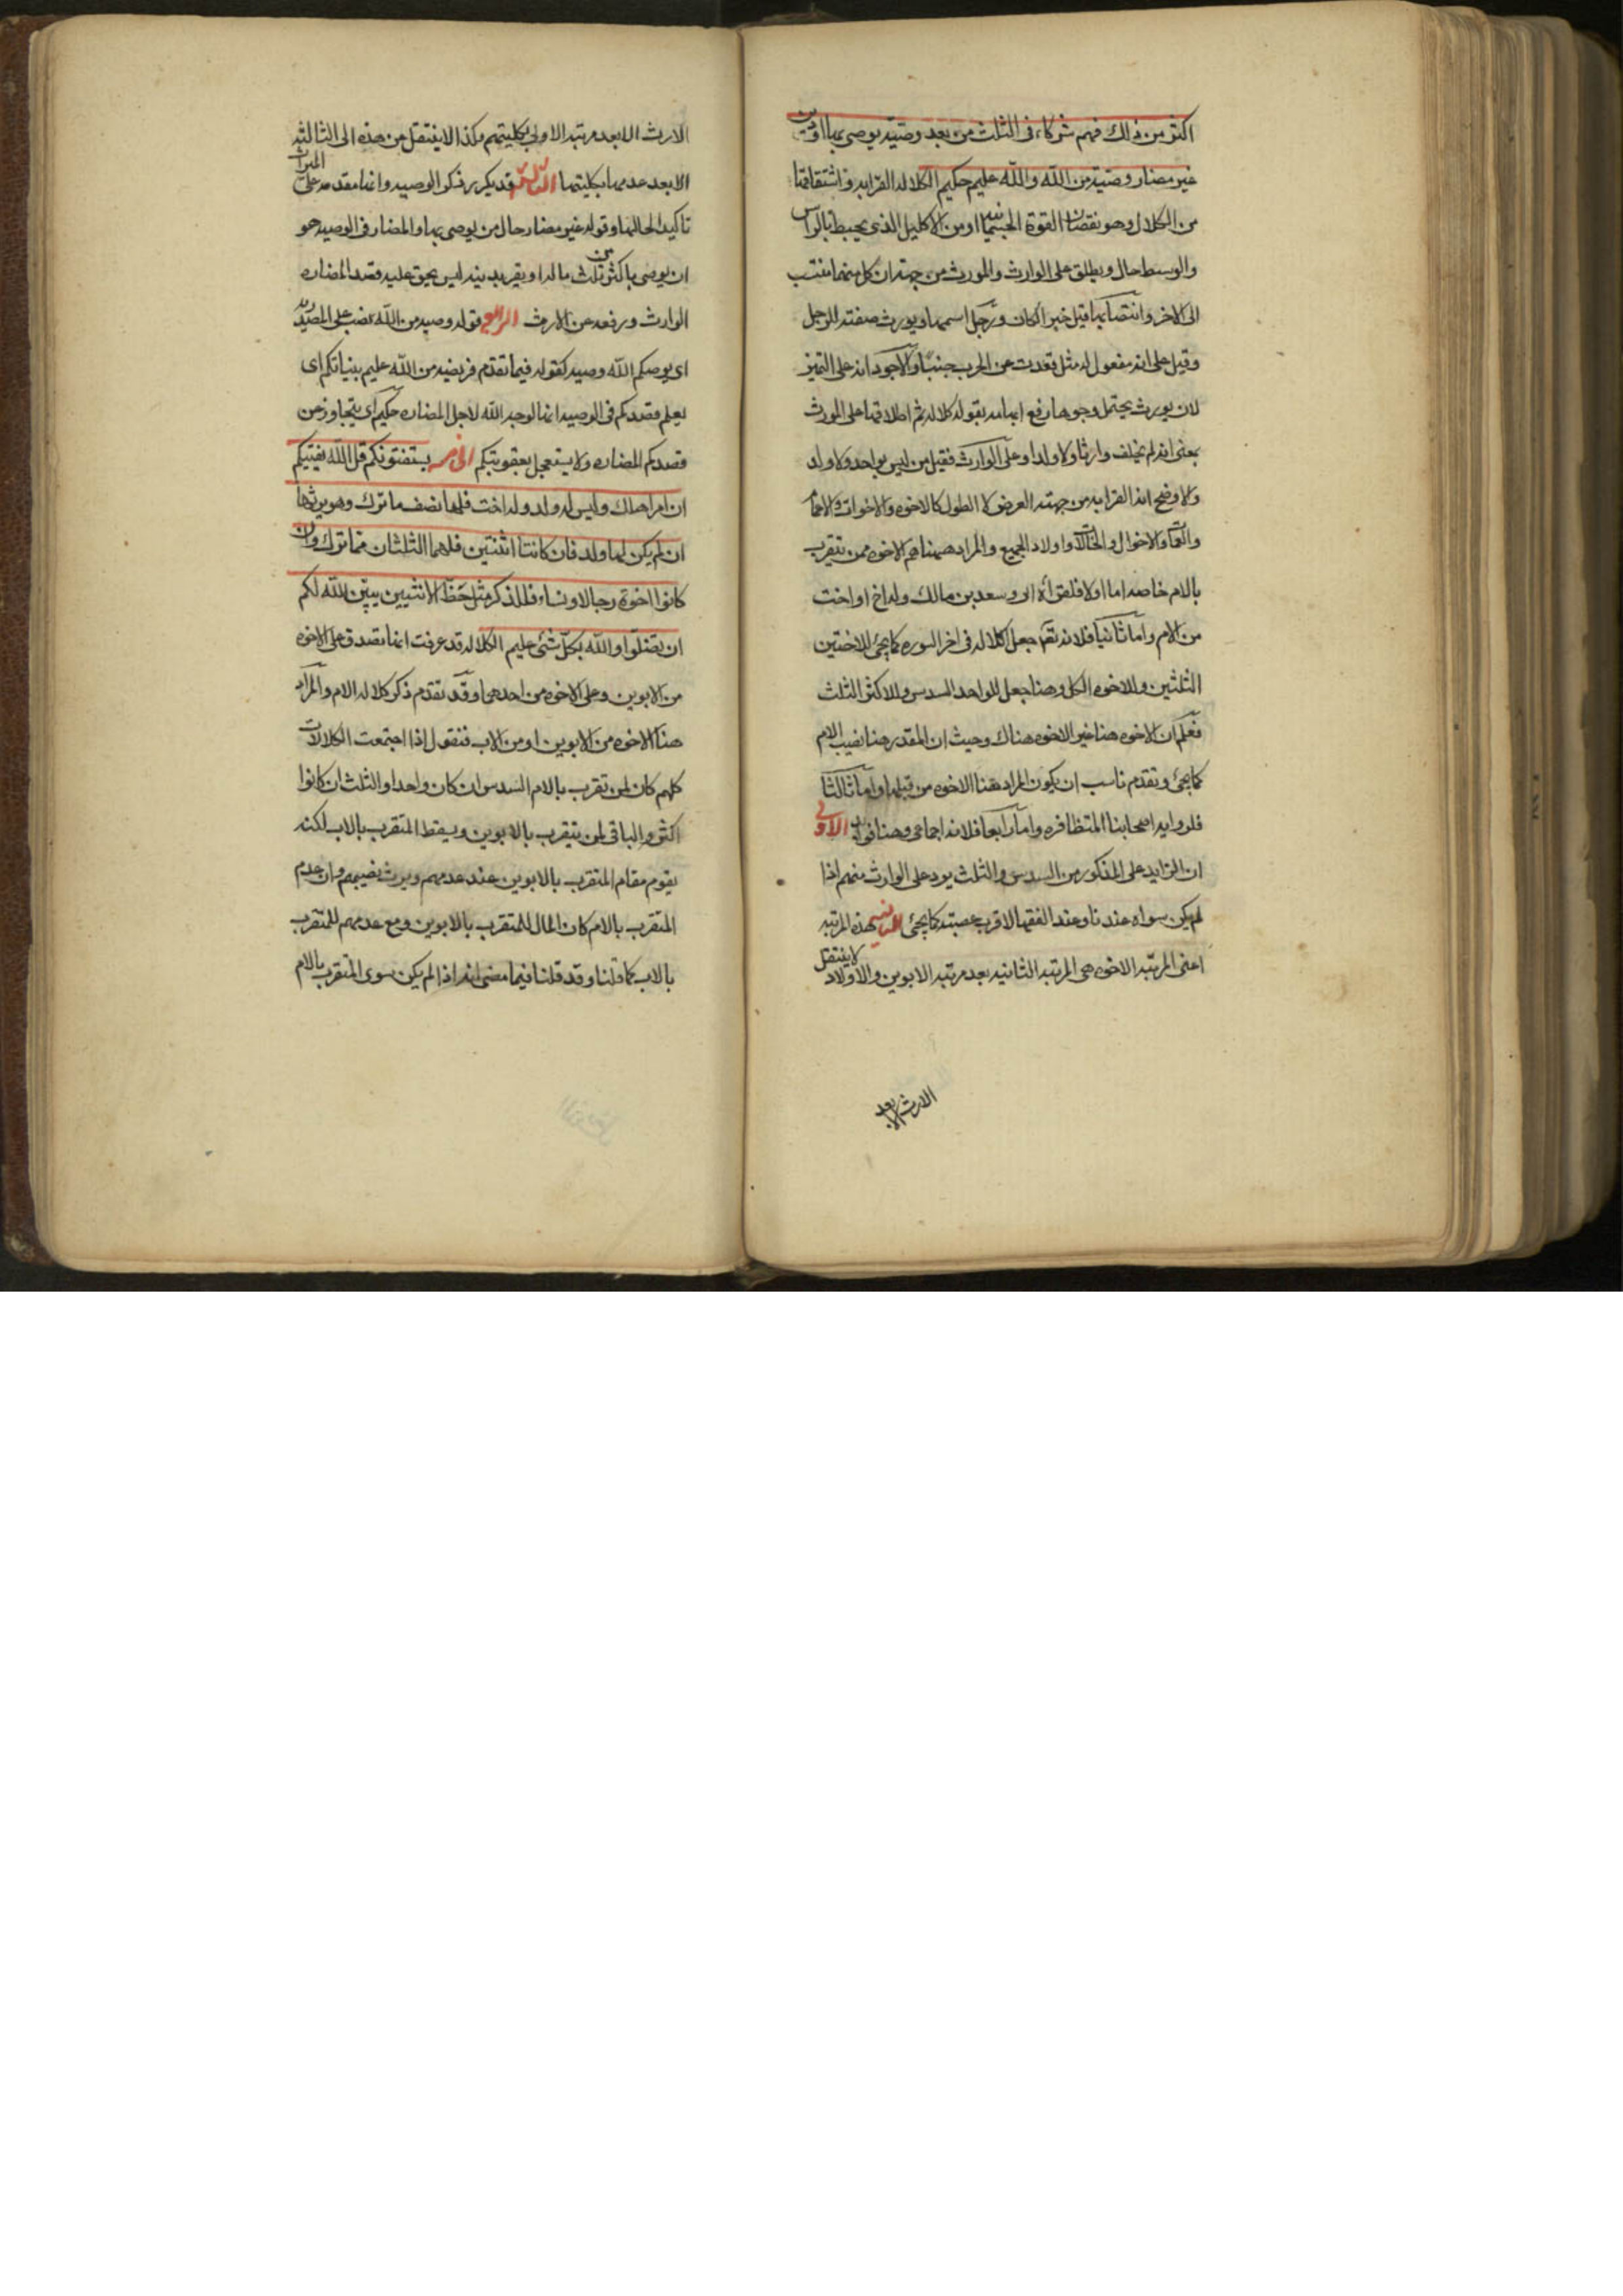 اكثر من ذلك فهم شركاء فى الثلث من بعد وصيّة يوصى بها او دين
غير مضار وصيّة من الله والله عليم حكيم الكلاله القرابه واشتقاقها
من الكلال وهو نقصان القوة الجسمانيه او من الاكليل الذى يحيط بالراس
والوسط حال ويطلق على الوارث والمورث من جهة ان كل منهما منتسب
الى الاخر وانتصابها قيل خبرا لكان ورجل اسمها ويورث صفته للرجل
وقيل على انه مفعول له مثل قعدت عن الحرب جنبا والاجود انه على التميز
لان يورث يحتمل وجوها رفع ابهامه بقوله كلاله ثم اطلاقها على المورث
بمعنى انه لم يخلف وارثا ولا ولدا وعلى الوارث فقيل من ليس بواحد ولا ولد
والاوضح انه القرابه من جهة العرض لا الطول كالاخوه والاخوات والاعمام
والعمات والاخوال والخالات واولاد الجميع والمراد ههنا هم الاخوه ممن يتقرب
بالام خاصه اما اولا فلقراة ابى وسعد بن مالك وله اخ او اخت
من الام واما ثانيا فلانه تعم جعل الكلاله فى اخر السوره كما يجئ للاختين
الثلثين وللاخوه الكل وهنا جعل للواحد السدس وللاكثر الثلث
فعلم ان الاخوه هنا غير الاخوه هناك وحيث ان المقدر هنا نصيب الام
كما يجئ وتقدم ناسب ان يكون المراد ههنا الاخوه من قبلها واما ثالثا
فلروايه اصحابنا المتظافره واما رابعا فلانه اجماعى وهنا فوايد الاولى
ان الزايد على المذكور من السدس والثلث يرد على الوارث منهم اذا
لم يكن سواه عندنا وعند الفقها لاقرب عصبته كما يجئ الثانيه هذه المرتبه
اعنى المرتبه الاخوه هى المرتبه الثانيه بعد مرتبه الابوين والاولاد لا ينتقل
الارث الا بعد
الارث الا بعد مرتبه الاولى بكليتهم وكذا لا ينتقل من هذه الى الثالثه
الا بعد عدمها بكليتها الثالثه قد يكرر ذكر الوصيه وانها مقدمه على الميراث
تاكيدا لحالها وقوله غير مضار حال من يوصى بها والمضار فى الوصيه هو
ان يوصى باكثر من ثلث ماله او يقر بدين ليس بحق عليه قصدا لمضاره
الوارث ورفعه عن الارث الرابع قوله وصيه من الله نصب على المصدريه
اى يوصيكم الله وصيه كقوله فيما تقدم فريضه من الله عليم بنياتكم اى
يعلم قصدكم فى الوصيه انها لوجه الله لاجل المضاره حكيم اى يتجاوز عن
قصدكم المضاره ولا يستعجل بعقوبتكم الخامسه يستفتونكم قل الله يفتيكم
ان امرا هلك وليس له ولد وله اخت فلها نصف ما ترك وهو يرثها
ان لم يكن لها ولد فان كانتا اثنتين فلهما الثلثان مما ترك وان
كانوا اخوة رجالا ونساء فللذكر مثل حظ الانثيين يبيّن الله لكم
ان تضلّوا والله بكلّ شئ عليم الكلاله قد عرفت انها تصدق على الاخوه
من الابوين وعلى الاخوه من احدهما وقد تقدم ذكر كلاله الام والمراد
هنا الاخوه من الابوين او من الاب فنقول اذا اجتمعت الكلالات
كلهم كان لمن تقرب بالام السدس ان كان واحدا والثلث ان كانوا
اكثر والباقى لمن يتقرب بالابوين ويسقط المتقرب بالاب لكنه
يقوم مقام المتقرب بالابوين عند عدمهم ويرث نصيبهم وان عدم
المتقرب بالام كان المال للمتقرب بالابوين ومع عدمهم للمتقرب
بالاب كما قلنا وقد قلنا فيما مضى انه اذا لم يكن سوى المتقرب بالام